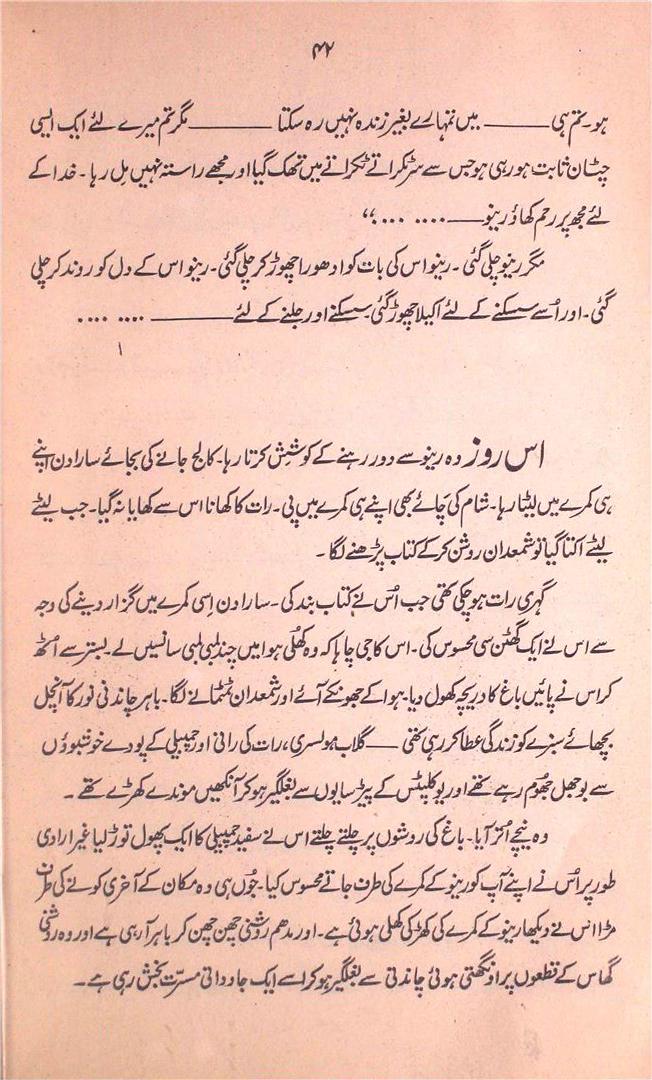 ۴۲
ہو۔ تم ہی ——— میں تمہارے بغیر زندہ نہیں رہ سکتا ——— مگر تم میرے لئے ایک ایسی
چٹان ثابت ہو رہی ہو جس سے سر ٹکراتے ٹکراتے میں تھک گیا اور مجھے راستہ نہیں مل رہا۔ خدا کے
لئے مجھ پر رحم کھاؤ رینو ——— .... ....“
مگر رینو چلی گئی۔ رینو اس کی بات کو ادھورا چھوڑ کر چلی گئی۔ رینو اس کے دل کو روند کر چلی
گئی۔ اور اُسے سسکنے کے لئے اکیلا چھوڑ گئی۔ سسکنے اور جلنے کے لئے ——— .... ....
۱
اس روز وہ رینو سے دور رہنے کے کوشش کرتا رہا۔ کالج جانے کی بجائے سارا دن اپنے
ہی کمرے میں لیٹا رہا۔ شام کی چائے بھی اپنے ہی کمرے میں پی۔ رات کا کھانا اس سے کھایا نہ گیا۔ جب لیٹے
لیٹے اکتا گیا تو شمعدان روشن کر کے کتاب پڑھنے لگا۔
گہری رات ہو چکی تھی جب اُس نے کتاب بند کی۔ سارا دن اِسی کمرے میں گزار دینے کی وجہ
سے اس نے ایک گھٹن سی محسوس کی۔ اس کا جی چاہا کہ وہ کھلی ہوا میں چند لمبی لمبی سانسیں لے۔ بستر سے اُٹھ
کر اس نے پائیں باغ کا دریچہ کھول دیا۔ ہوا کے جھونکے آئے اور شمعدان ٹمٹمانے لگا۔ باہر چاندنی نور کا آنچل
بچھائے سبزے کو زندگی عطا کر رہی تھی —— گلاب مولسری، رات کی رانی اور چمپیلی کے پودے خوشبوؤں
سے بوجھل جھوم رہے تھے اور یوکلپٹس کے پیڑ سایوں سے بغلگیر ہو کر آنکھیں موندے کھڑے تھے۔
وہ نیچے اُتر آیا۔ باغ کی روشوں پر چلتے چلتے اس نے سفید چمپیلی کا ایک پھول توڑ لیا غیر ارادی
طور پر اُس نے اپنے آپ کو رینو کے کمرے کی طرف جاتے محسوس کیا۔ جُوں ہی وہ مکان کے آخری کونے کی طرف
مڑا اس نے دیکھا رینو کے کمرے کی کھڑکی کھلی ہوئی ہے۔ اور مدھم روشنی چھن چھن کر باہر آ رہی ہے اور وہ روشنی
گھاس کے قطعوں پر اونگھتی ہوئی چاندنی سے بغلگیر ہو کر اسے ایک جاودانی مسرت بخش رہی ہے۔